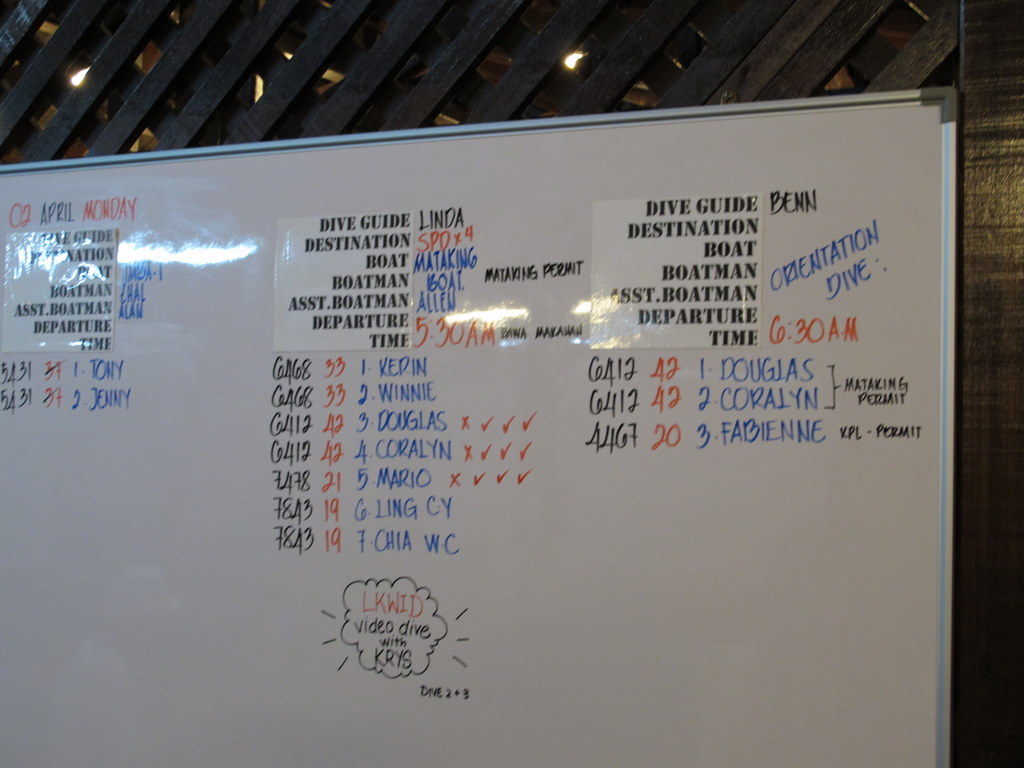 02 APRIL MONDAY
DIVE GUIDE
DESTINATION
BOAT
BOATMAN
ASST.BOATMAN
DEPARTURE
TIME
ALAN
5431 37 1. TONY
5431 37 2. JENNY
DIVE GUIDE LINDA
DESTINATION SPD x 4
BOAT MATAKING BOAT. MATAKING PERMIT
BOATMAN ALLEN
ASST.BOATMAN
DEPARTURE
TIME 5:30AM MAKANAN
6468 33 1. KERIN
6468 33 2. WINNIE
6412 42 3. DOUGLAS x ✓ ✓ ✓
6412 42 4. CORALYN x ✓ ✓ ✓
7478 21 5. MARIO x ✓ ✓ ✓
7843 19 6. LING CY
7843 19 7. CHIA WC
LKWID
video dive
with
KRYS
DIVE 2+3
DIVE GUIDE BENN
DESTINATION
BOAT
BOATMAN
ASST.BOATMAN
DEPARTURE
TIME 6:30AM
ORIENTATION
DIVE:
6412 42 1. DOUGLAS
6412 42 2. CORALYN
MATAKING
PERMIT
4467 20 3. FABIENNE KPL - PERMIT